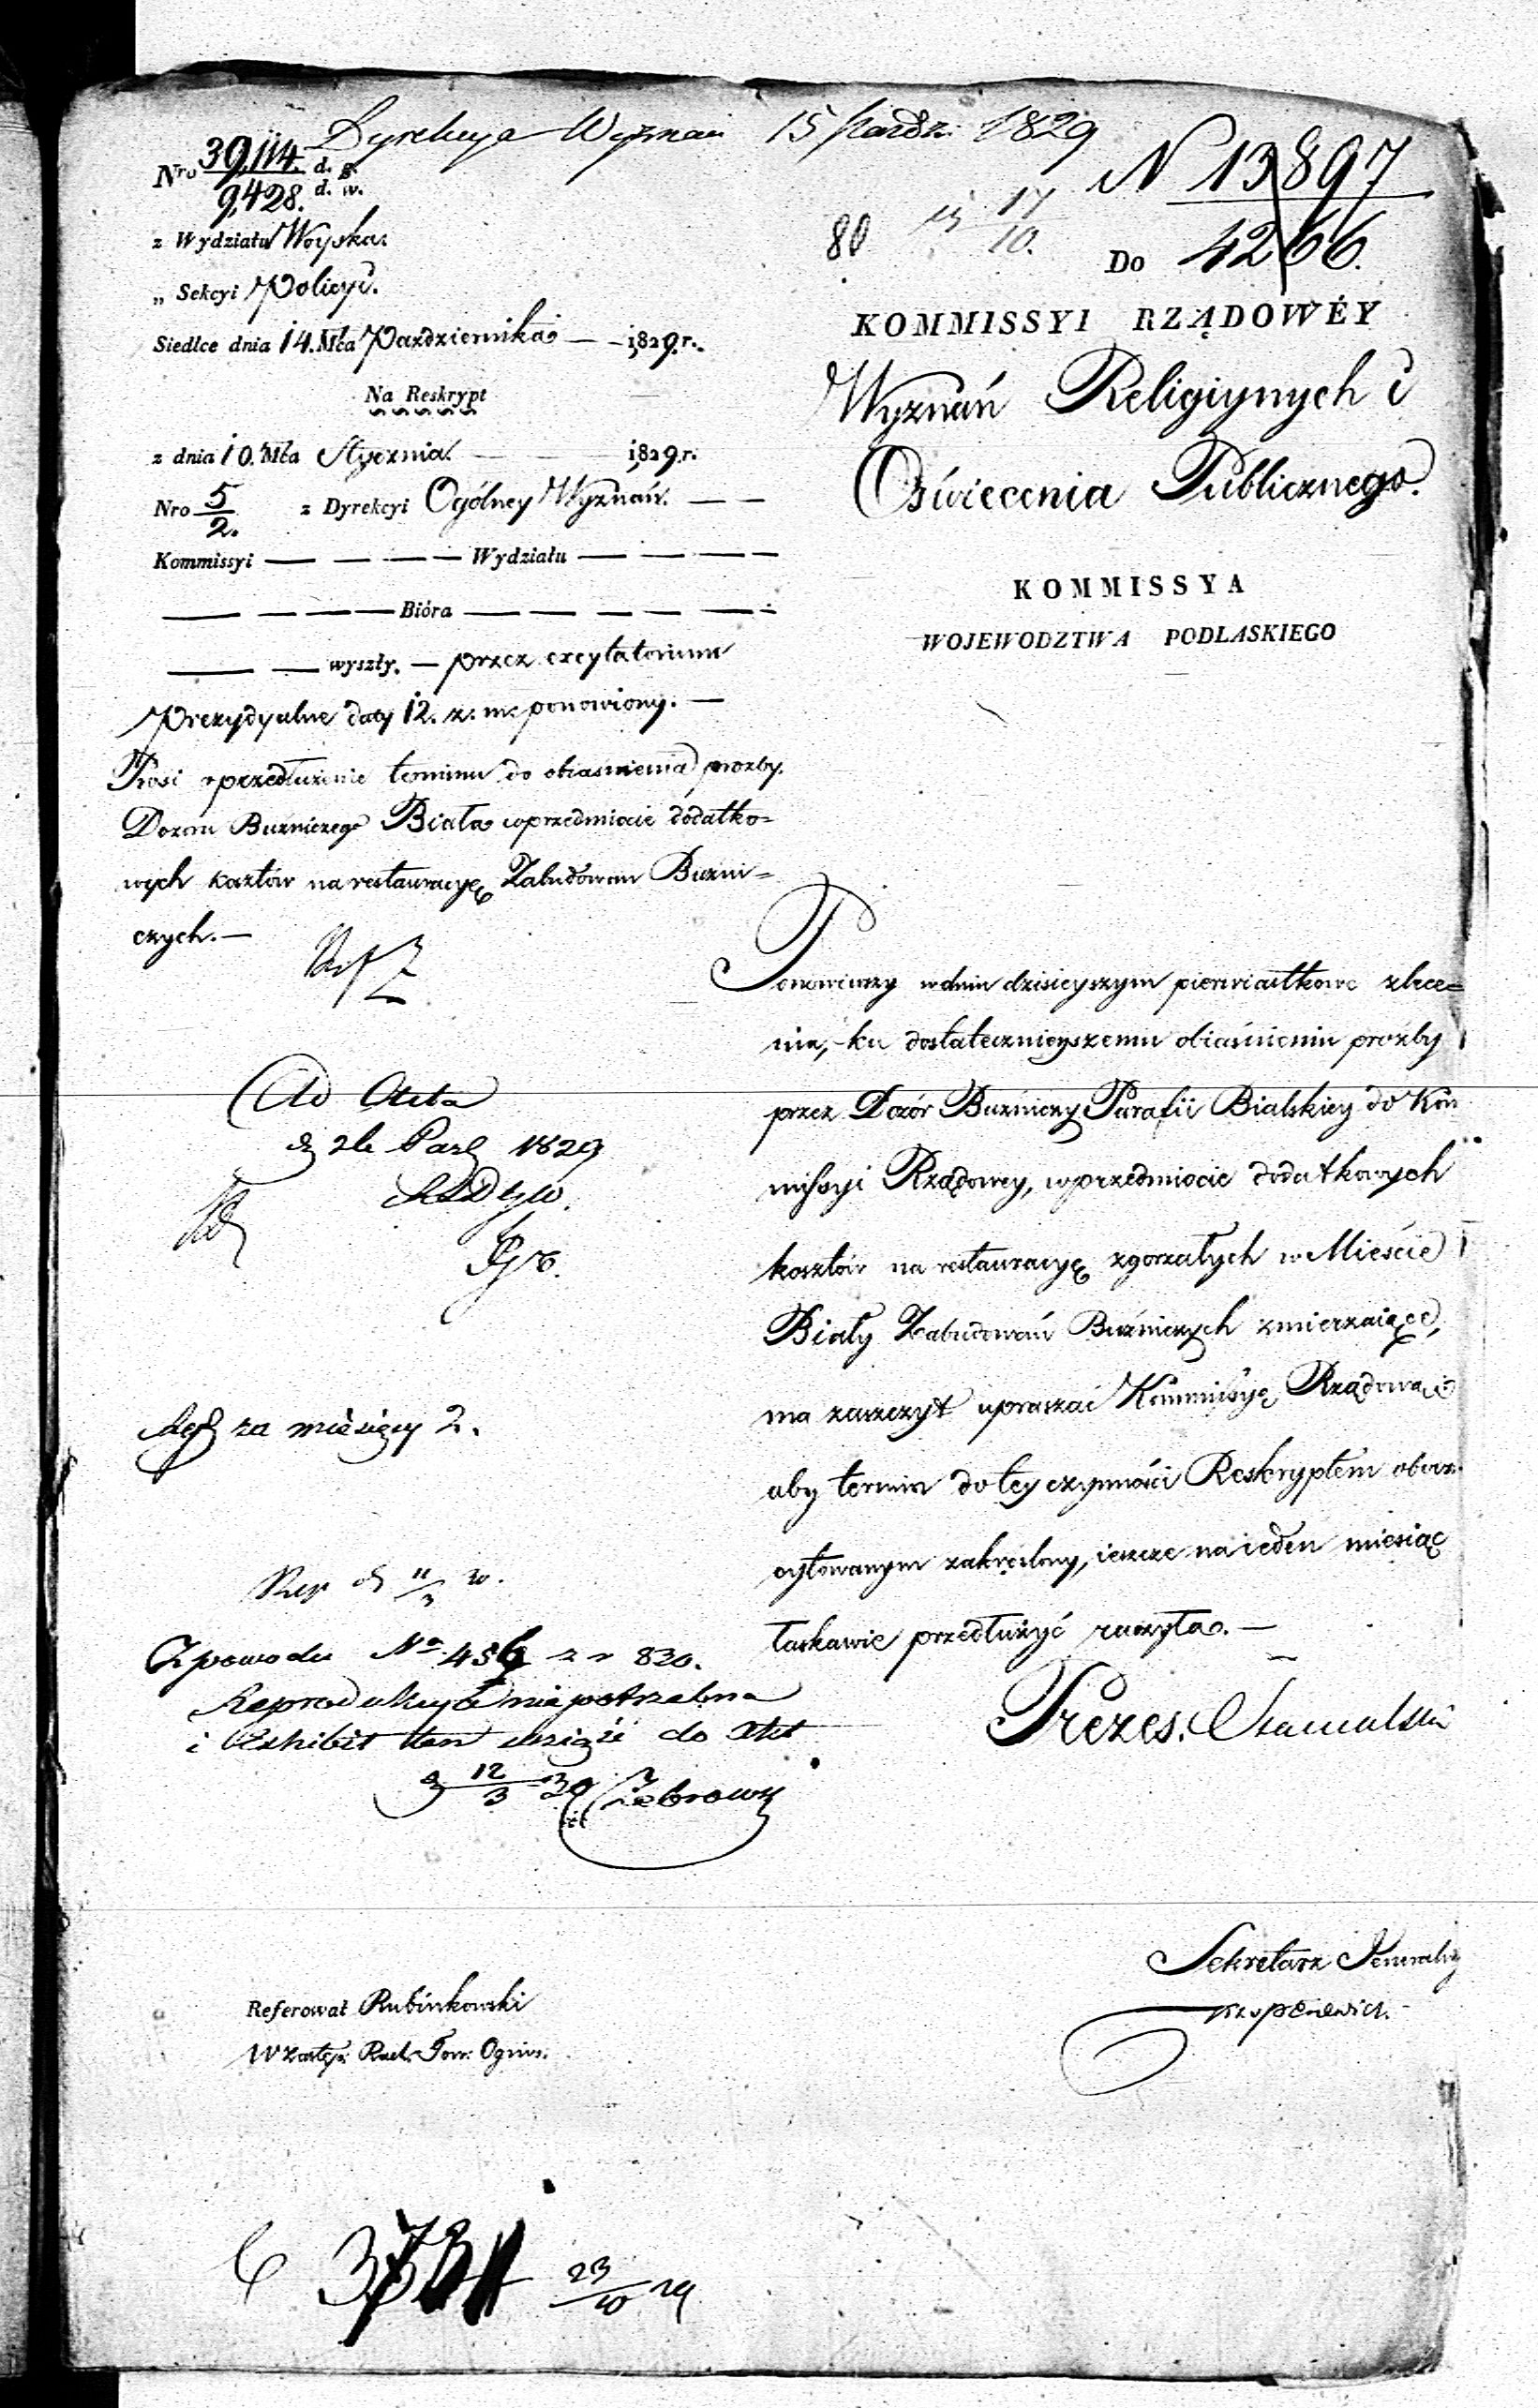 Dyrekcya Wyznań 15 Pazdz. 1829
Nro 39,114. d. g.
9,428. d. w.
z Wydziału Woyska.
„ Sekcyi Policyi.
Siedlce dnia 14. Mca Pazdziernika — — 1829. r.
Na Reskrypt
z dnia 10. Mca Stycznia. 1829. r.
Nro 5/2. z Dyrekcyi Ogólney Wyznań. — —
Kommissyi — — — — Wydziału — — — —
— — — — Bióra — — — — — —
— — wyszły. — przez excytatorium
Prezydyalne daty 12. z. m. ponowiony. —
Prosi o przedłużenie terminu do obiaśnienia prozby
Dozoru Bużniczego Biała w przedmiocie dodatko=
wych kosztów na restauracyę Zabudowań Bużni=
czych. —
N 13897
4266.
80 17
10.
Do
KOMMISSYI RZĄDOWÉY
Wyznań Religiynych i
Oświecenia Publicznego.
KOMMISSYA
WOJEWODZTWA PODLASKIEGO
Ponowiwszy w dniu dzisieyszym pierwiastkowe zlece=
nia, ku dostatecznieyszemu obiaśnieniu prozby
przez Dozór Bużniczy Parafii Bialskiey do Kom
missyi Rządowey, w przedmiocie dodatkowych
kosztów na restauracyę zgorzałych w Mieście
Biały Zabudowań Bużniczych zmierzaiącé,
ma zaszczyt upraszać Kommissyę Rządową
aby termin do tey czynności Reskryptem obocz.
cytowanym zakreślony, ieszcze na ieden miesiąc
łaskawie przedłużyć raczyła. —
Prezes.
Sekretarz Jeneralny
Ad Acta
Paz 1829
za miesięcy 2.
Z powodu No 456 z r 830.
Reprodukcya niepotrzebna
i Exhibit ten wziąść do Akt
12/3 30 Żebrowski
Referował Rubinkowski
W Zastęp. Rad.
23/10 29